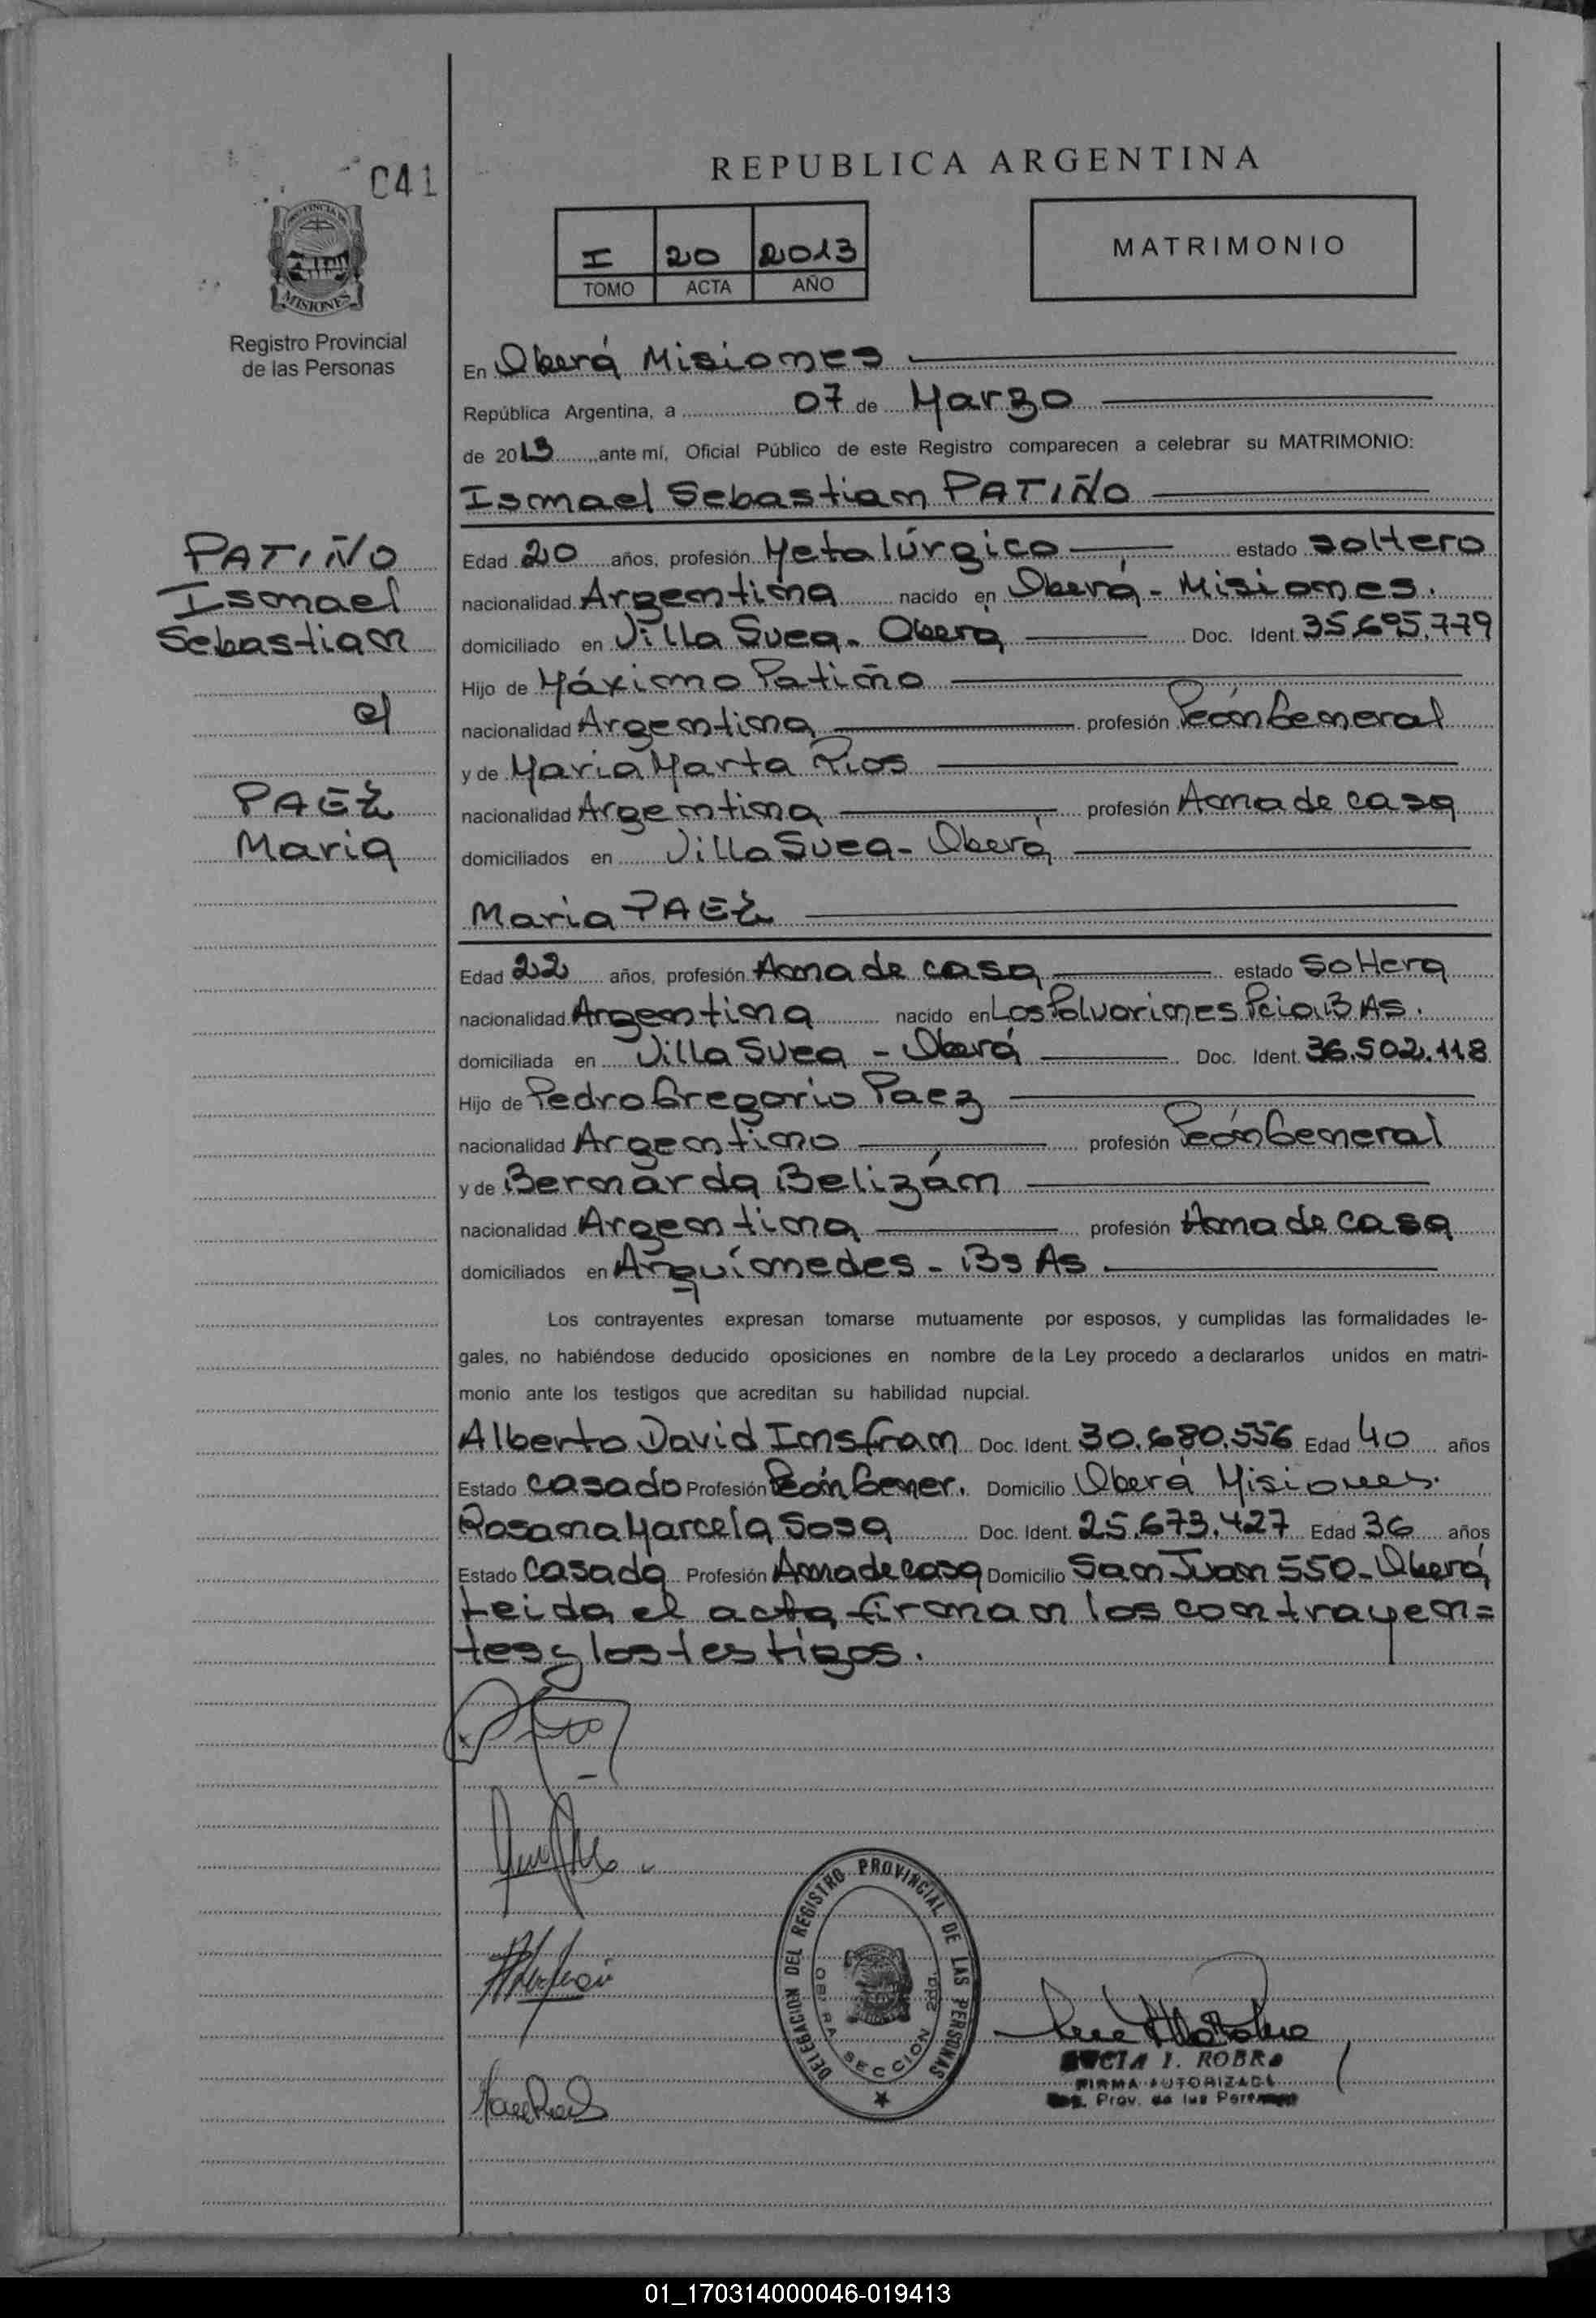 041
REPUBLICA ARGENTINA
I 20 2013
TOMO ACTA AÑO
MATRIMONIO
PROVINCIA DE
MISIONES
Registro Provincial
de las Personas
En Oberá Misiones
República Argentina, a 07 de Marzo
de 2013 ante mí, Oficial Público de este Registro comparecen a celebrar su MATRIMONIO:
Ismael Sebastian PATIÑO
PATIÑO
Ismael
Sebastian
c/
PAEZ
Maria
Edad 20 años, profesión Metalúrgico estado soltero
nacionalidad Argentina nacido en Oberá - Misiones.
domiciliado en Villa Svea - Oberá Doc. Ident. 35.695.779
Hijo de Máximo Patiño
nacionalidad Argentina profesión Peón General
y de Maria Marta Rios
nacionalidad Argentina profesión Ama de casa
domiciliados en Villa Svea - Oberá
Maria PAEZ
Edad 22 años, profesión Ama de casa estado Soltera
nacionalidad Argentina nacido en Los Polvorines Pcia. B AS.
domiciliada en Villa Svea - Oberá Doc. Ident. 36.502.118
Hijo de Pedro Gregorio Paez
nacionalidad Argentino profesión Peón General
y de Bernarda Belizán
nacionalidad Argentina profesión Ama de casa
domiciliados en Arquímedes - Bs As.
Los contrayentes expresan tomarse mutuamente por esposos, y cumplidas las formalidades le-
gales, no habiéndose deducido oposiciones en nombre de la Ley procedo a declararlos unidos en matri-
monio ante los testigos que acreditan su habilidad nupcial.
Alberto David Insfran Doc. Ident. 30.680.556 Edad 40 años
Estado casado Profesión Peón Gener. Domicilio Oberá Misiones.
Rosana Marcela Sosa Doc. Ident. 25.673.427 Edad 36 años
Estado casada Profesión Ama de casa Domicilio San Juan 550 - Oberá
Leida el acta firman los contrayen=
tes y los testigos.
DELEGACION DEL REGISTRO PROVINCIAL DE LAS PERSONAS
SECCION 2da.
I. ROBR
FIRMA AUTORIZADA
Prov. de las
01_170314000046-019413